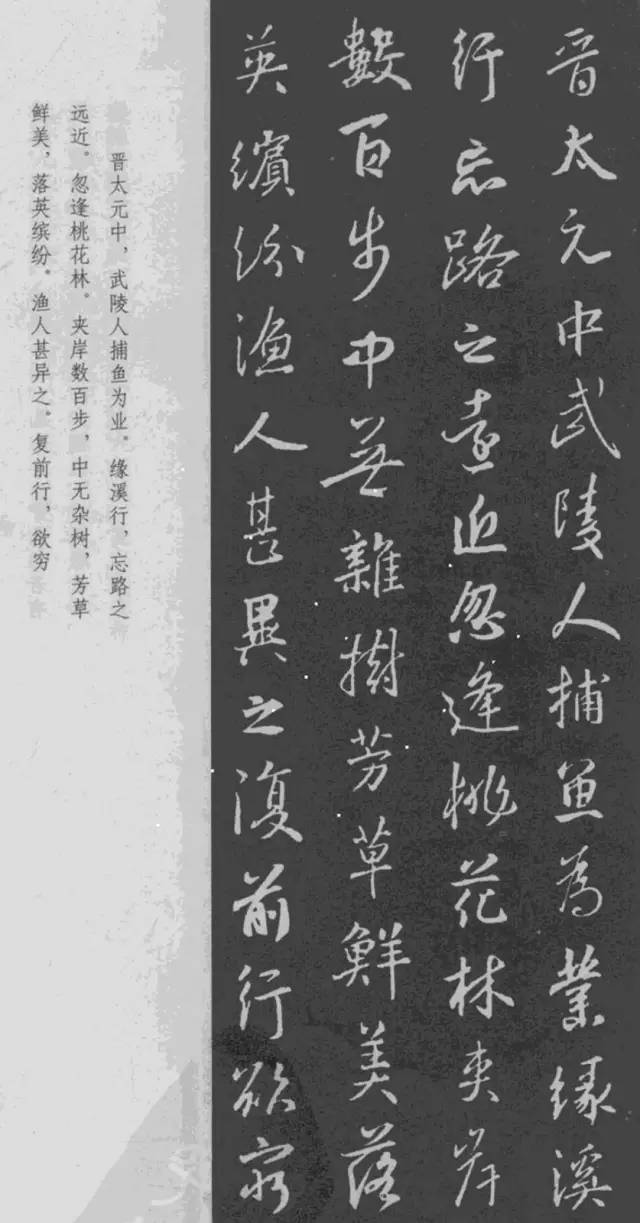 晋太元中武陵人捕鱼為業緣溪
行忘路之遠近忽逢桃花林夹岸
數百步中無雜樹芳草鮮美落
英繽紛漁人甚異之復前行欲窮
晋太元中，武陵人捕鱼为业。缘溪行，忘路之
远近。忽逢桃花林。夹岸数百步，中无杂树，芳草
鲜美，落英缤纷。渔人甚异之。复前行，欲穷